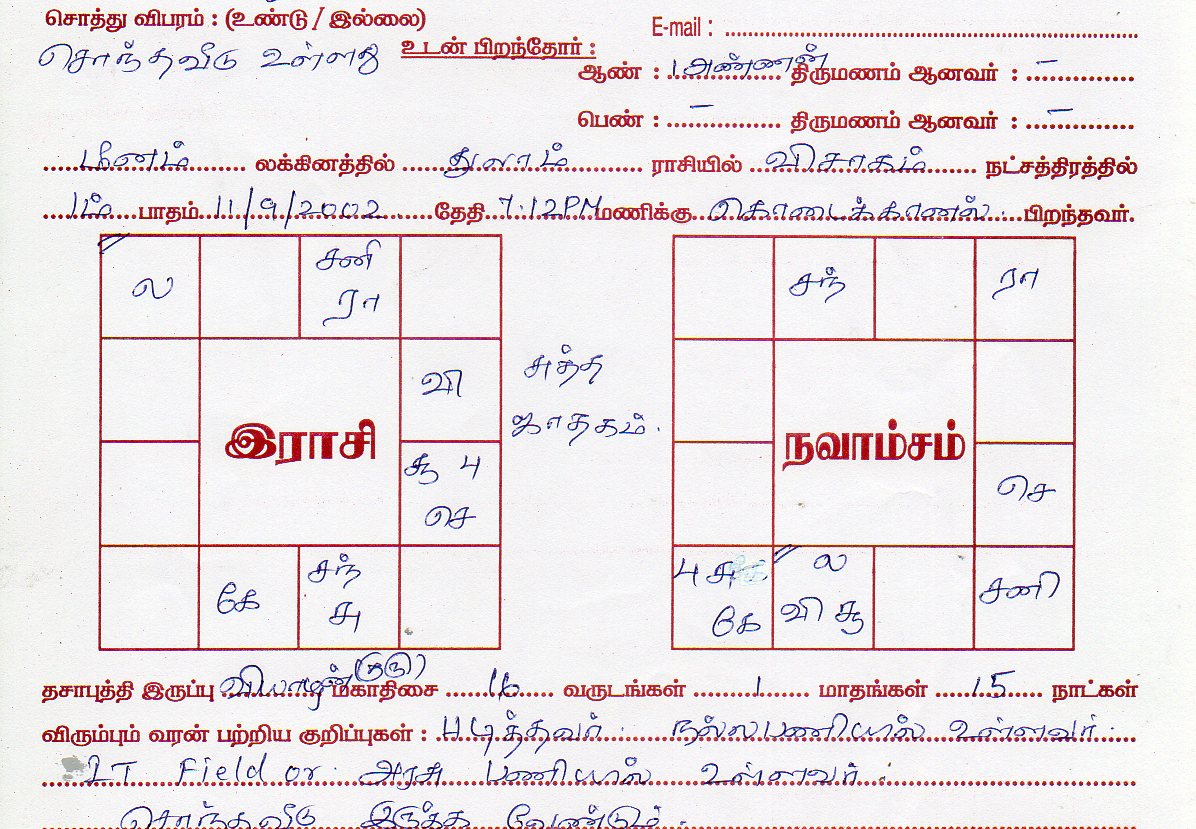 சொத்து விபரம் : (உண்டு / இல்லை)
E-mail :
சொந்தவீடு உள்ளது
உடன் பிறந்தோர் :
ஆண் : 1 அண்ணன் திருமணம் ஆனவர் : –
பெண் : – திருமணம் ஆனவர் : –
மீனம் லக்கினத்தில் துலாம் ராசியில் விசாகம் நட்சத்திரத்தில்
1ம் பாதம் 11/9/2002 தேதி 7.12PM மணிக்கு கொடைக்கானல். பிறந்தவர்.
ல
சனி
ரா
வி
இராசி
சூ 4
செ
கே
சந்
சு
சுத்த
ஜாதகம்.
சந்
ரா
நவாம்சம்
செ
4 சு
கே
ல
வி சூ
சனி
தசாபுத்தி இருப்பு வியாழன் (குரு) மகாதிசை 16 வருடங்கள் 1 மாதங்கள் 15 நாட்கள்
விரும்பும் வரன் பற்றிய குறிப்புகள் : படித்தவர். நல்லபணியில் உள்ளவர்.
IT Field or அரசு பணியில் உள்ளவர்.
சொந்தவீடு இருக்க வேண்டும்.